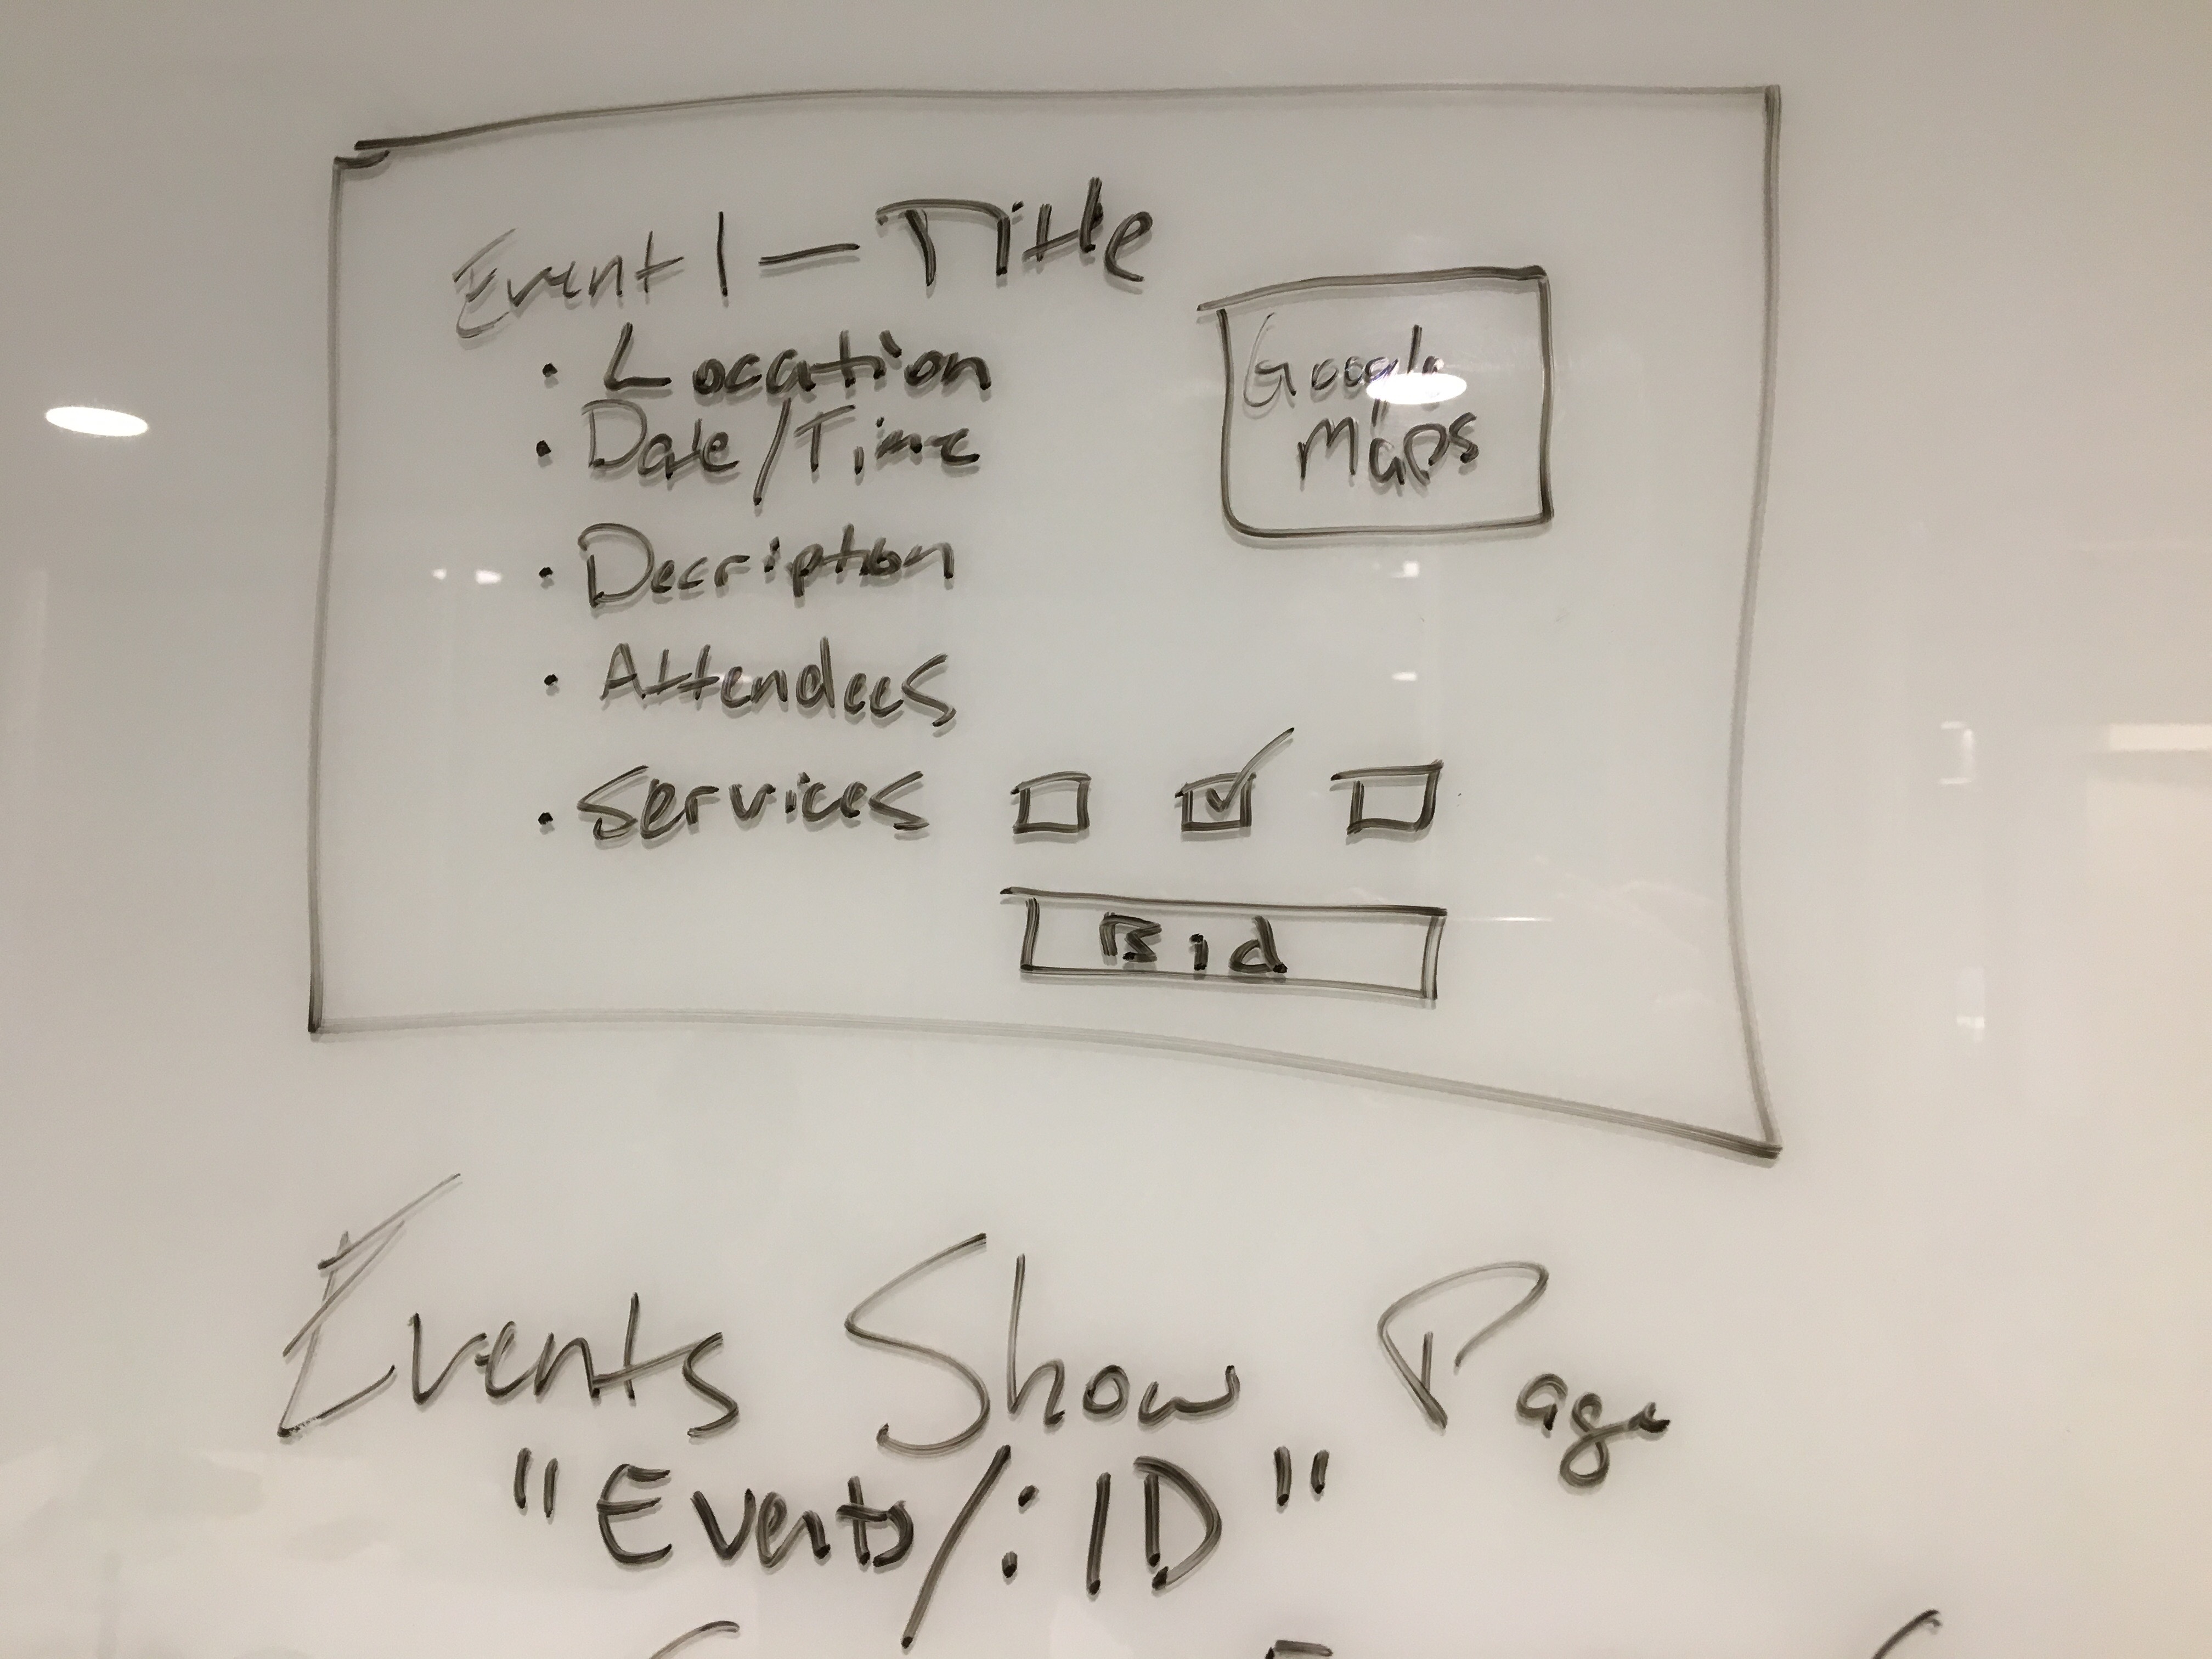 Event 1 — Title
• Location
• Date/Time
• Decription
• Attendees
• Services
Google
Maps
Bid
Events Show Page
"Events/:ID"